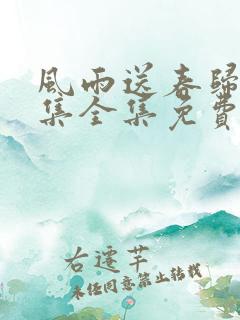 風雨送春歸
集全集免費
右遷芊
未经同意禁止转载